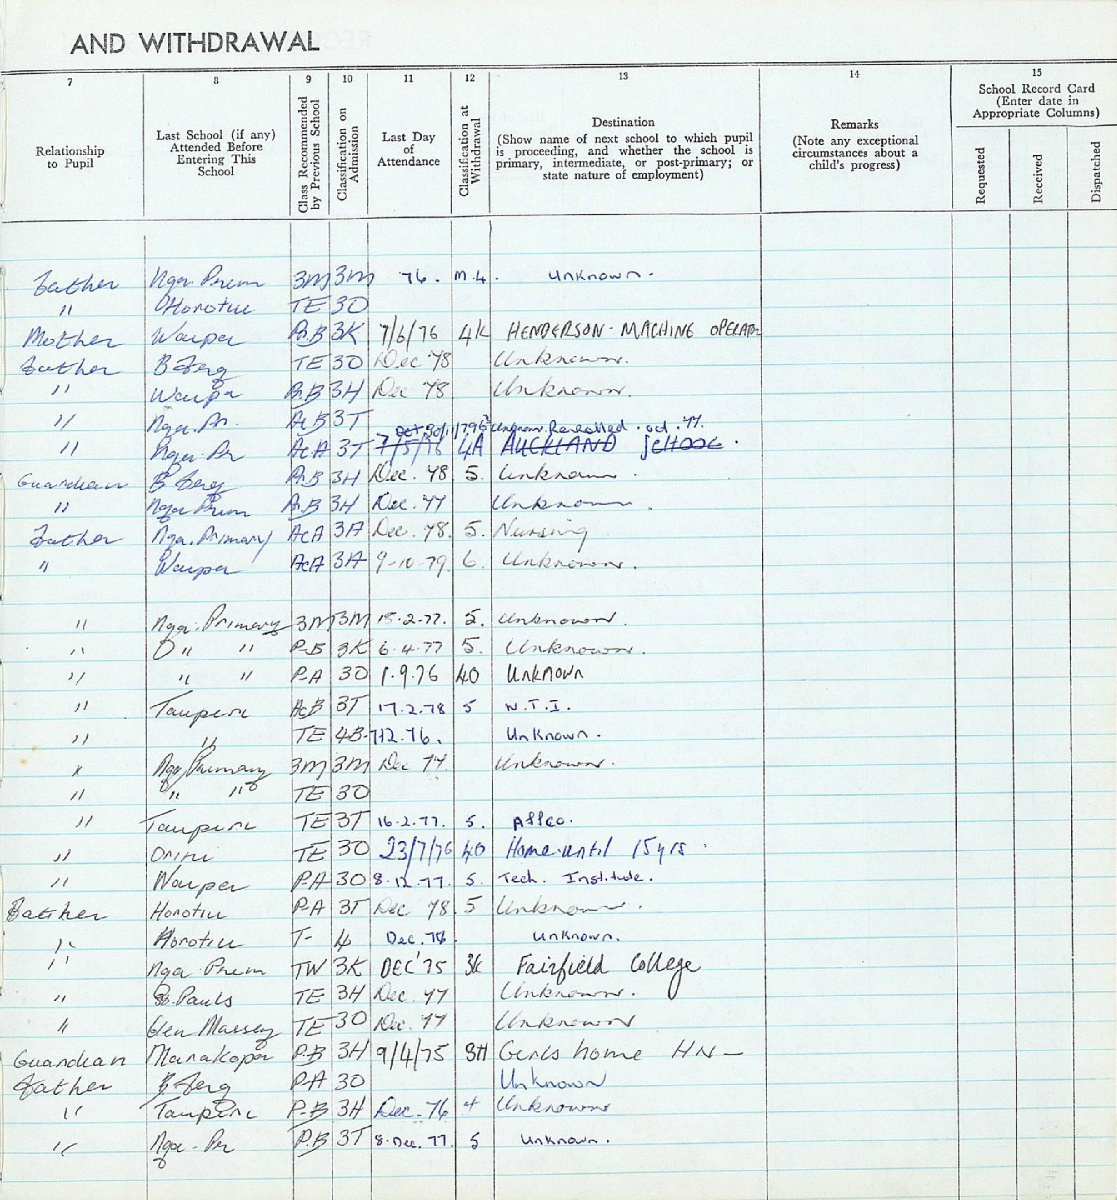 AND WITHDRAWAL
7 8 9 10 11 12 13 14 15
Relationship to Pupil
Last School (if any) Attended Before Entering This School
Class Recommended by Previous School
Classification on Admission
Last Day of Attendance
Classification at Withdrawal
Destination (Show name of next school to which pupil is proceeding, and whether the school is primary, intermediate, or post-primary; or state nature of employment)
Remarks (Note any exceptional circumstances about a child's progress)
School Record Card (Enter date in Appropriate Columns)
Requested Received Dispatched
Father Nga. Prim 3M 3M 76. M.4. Unknown.
" Horotiu TE 30
Mother Waipa P.B 3K 7/6/76 4K HENDERSON - MACHINE OPERAT
Father B Ferg TE 30 Dec '78 Unknown.
" Waipa P.B 3H Dec '78. Unknown.
" Nga. Pr. AcB 3T
Unknown Reenrolled. oct. '77.
" Nga Pr AcA 3T 7/5/76 4A AUCKLAND SCHOOL.
Guardian B Ferg P.B 3H Dec. '78 5. Unknown
" Nga Prim P.B 3H Dec. '77 Unknown.
Father Nga. Primary AcA 3A Dec. '78. 5. Nursing
" Waipa AcA 3A 9-10-79. 6. Unknown.
" Nga. Primary 3M 3M 15-2-77. 5. Unknown.
" " " P-B 3K 6-4-77 5. Unknown.
" " " P.A 30 1.9.76 40 Unknown
" Taupiri AcB 3T 17.2.78 5 W.T.I.
" " TE 4B 7.12.76. Unknown.
" Nga Primary 3M 3M Dec 77 Unknown.
" " " TE 30
" Taupiri TE 3T 16.2.77. 5. Affco.
" Orini TE 30 23/7/76 40 Home until 15yrs.
" Waipa P.A 30 8.12.77. 5. Tech. Institute.
Father Horotiu P-A 3T Dec '78. 5 Unknown.
" Horotiu T- 4 Dec. 76. Unknown.
" Nga. Prim TW 3K DEC '75 3K Fairfield College
" St. Pauls TE 3H Dec. 77 Unknown.
" Glen Massey TE 30 Dec. 77 Unknown
Guardian Marakopa P.B 3H 9/4/75 3H Girls home HN -
Father B Ferg P-A 30 Unknown
" Taupiri P.B 3H Dec. 76 4 Unknown
" Nga. Pr P.B 3T 8. Dec. 77. 5 Unknown.